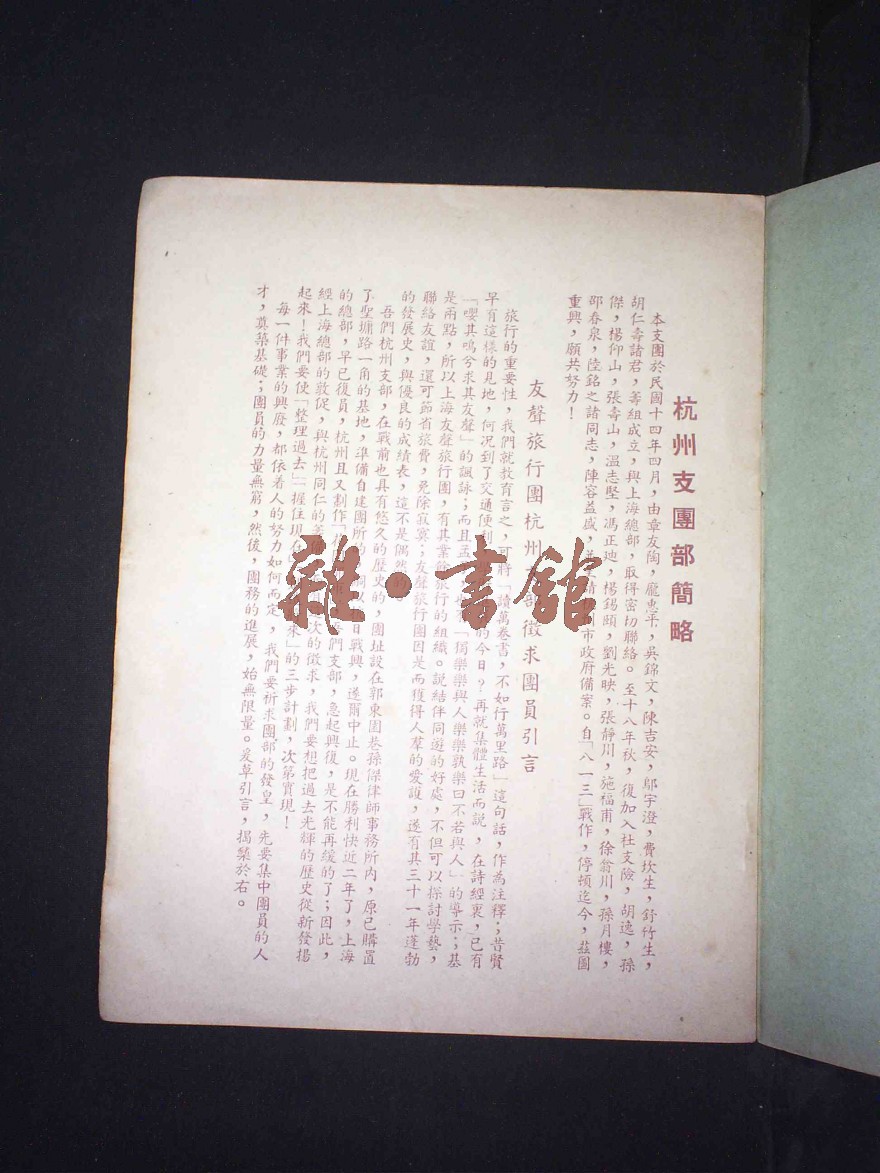 杭州支團部簡略
本支團於民國十四年四月，由章友陶，龐惠平，吳錦文，陳吉安，鄔宇澄，費坎生，舒竹生，
胡仁壽諸君，籌組成立，與上海總部，取得密切聯絡。至十八年秋，復加入杜支險，胡逸，孫
傑，楊仰山，張壽山，溫志堅，馮正廸，楊錫頤，劉光映，張靜川，施福甫，徐翁川，孫月樓，
邵春泉，陸銘之諸同志，陣容益盛，市政府備案。自「八一三」戰作，停頓迄今，茲圖
重興，願共努力！
友聲旅行團杭州徵求團員引言
旅行的重要性，我們就教育言之，可將「讀萬卷書，不如行萬里路」這句話，作為注釋；昔賢
早有這樣的見地，何況到了交通便利的今日？再就集體生活而說，在詩經裏，已有
「嚶其鳴兮求其友聲」的諷詠；而且孟「獨樂樂與人樂樂孰樂曰不若與人」的導示；基
是兩點，所以上海友聲旅行團，有其業餘旅行的組織。說結伴同遊的好處，不但可以探討學藝，
聯絡友誼，還可節省旅費，免除寂寞；友聲旅行團因是而獲得人羣的愛護，遂有其三十一年蓬勃
的發展史，與優良的成績表，這不是偶然的。
吾們杭州支部，在戰前也具有悠久的歷史的，團址設在郭東園巷孫傑律師事務所內，原已購置
了聖塘路一角的基地，準備自建團所，日戰興，遂爾中止。現在勝利快近二年了，上海
的總部，早已復員，杭州且又劃作吾們支部，急起興復，是不能再緩的了；因此，
經上海總部的敦促，與杭州同仁的籌次的徵求，我們要想把過去光輝的歷史從新發揚
起來！我們要使「整理過去」「握住現在」來」的三步計劃，次第實現！
每一件事業的興廢，都依着人的努力如何而定，我們要祈求團部的發皇，先要集中團員的人
才，奠築基礎；團員的力量無窮，然後，團務的進展，始無限量。爰草引言，揭櫫於右。
雜·書館